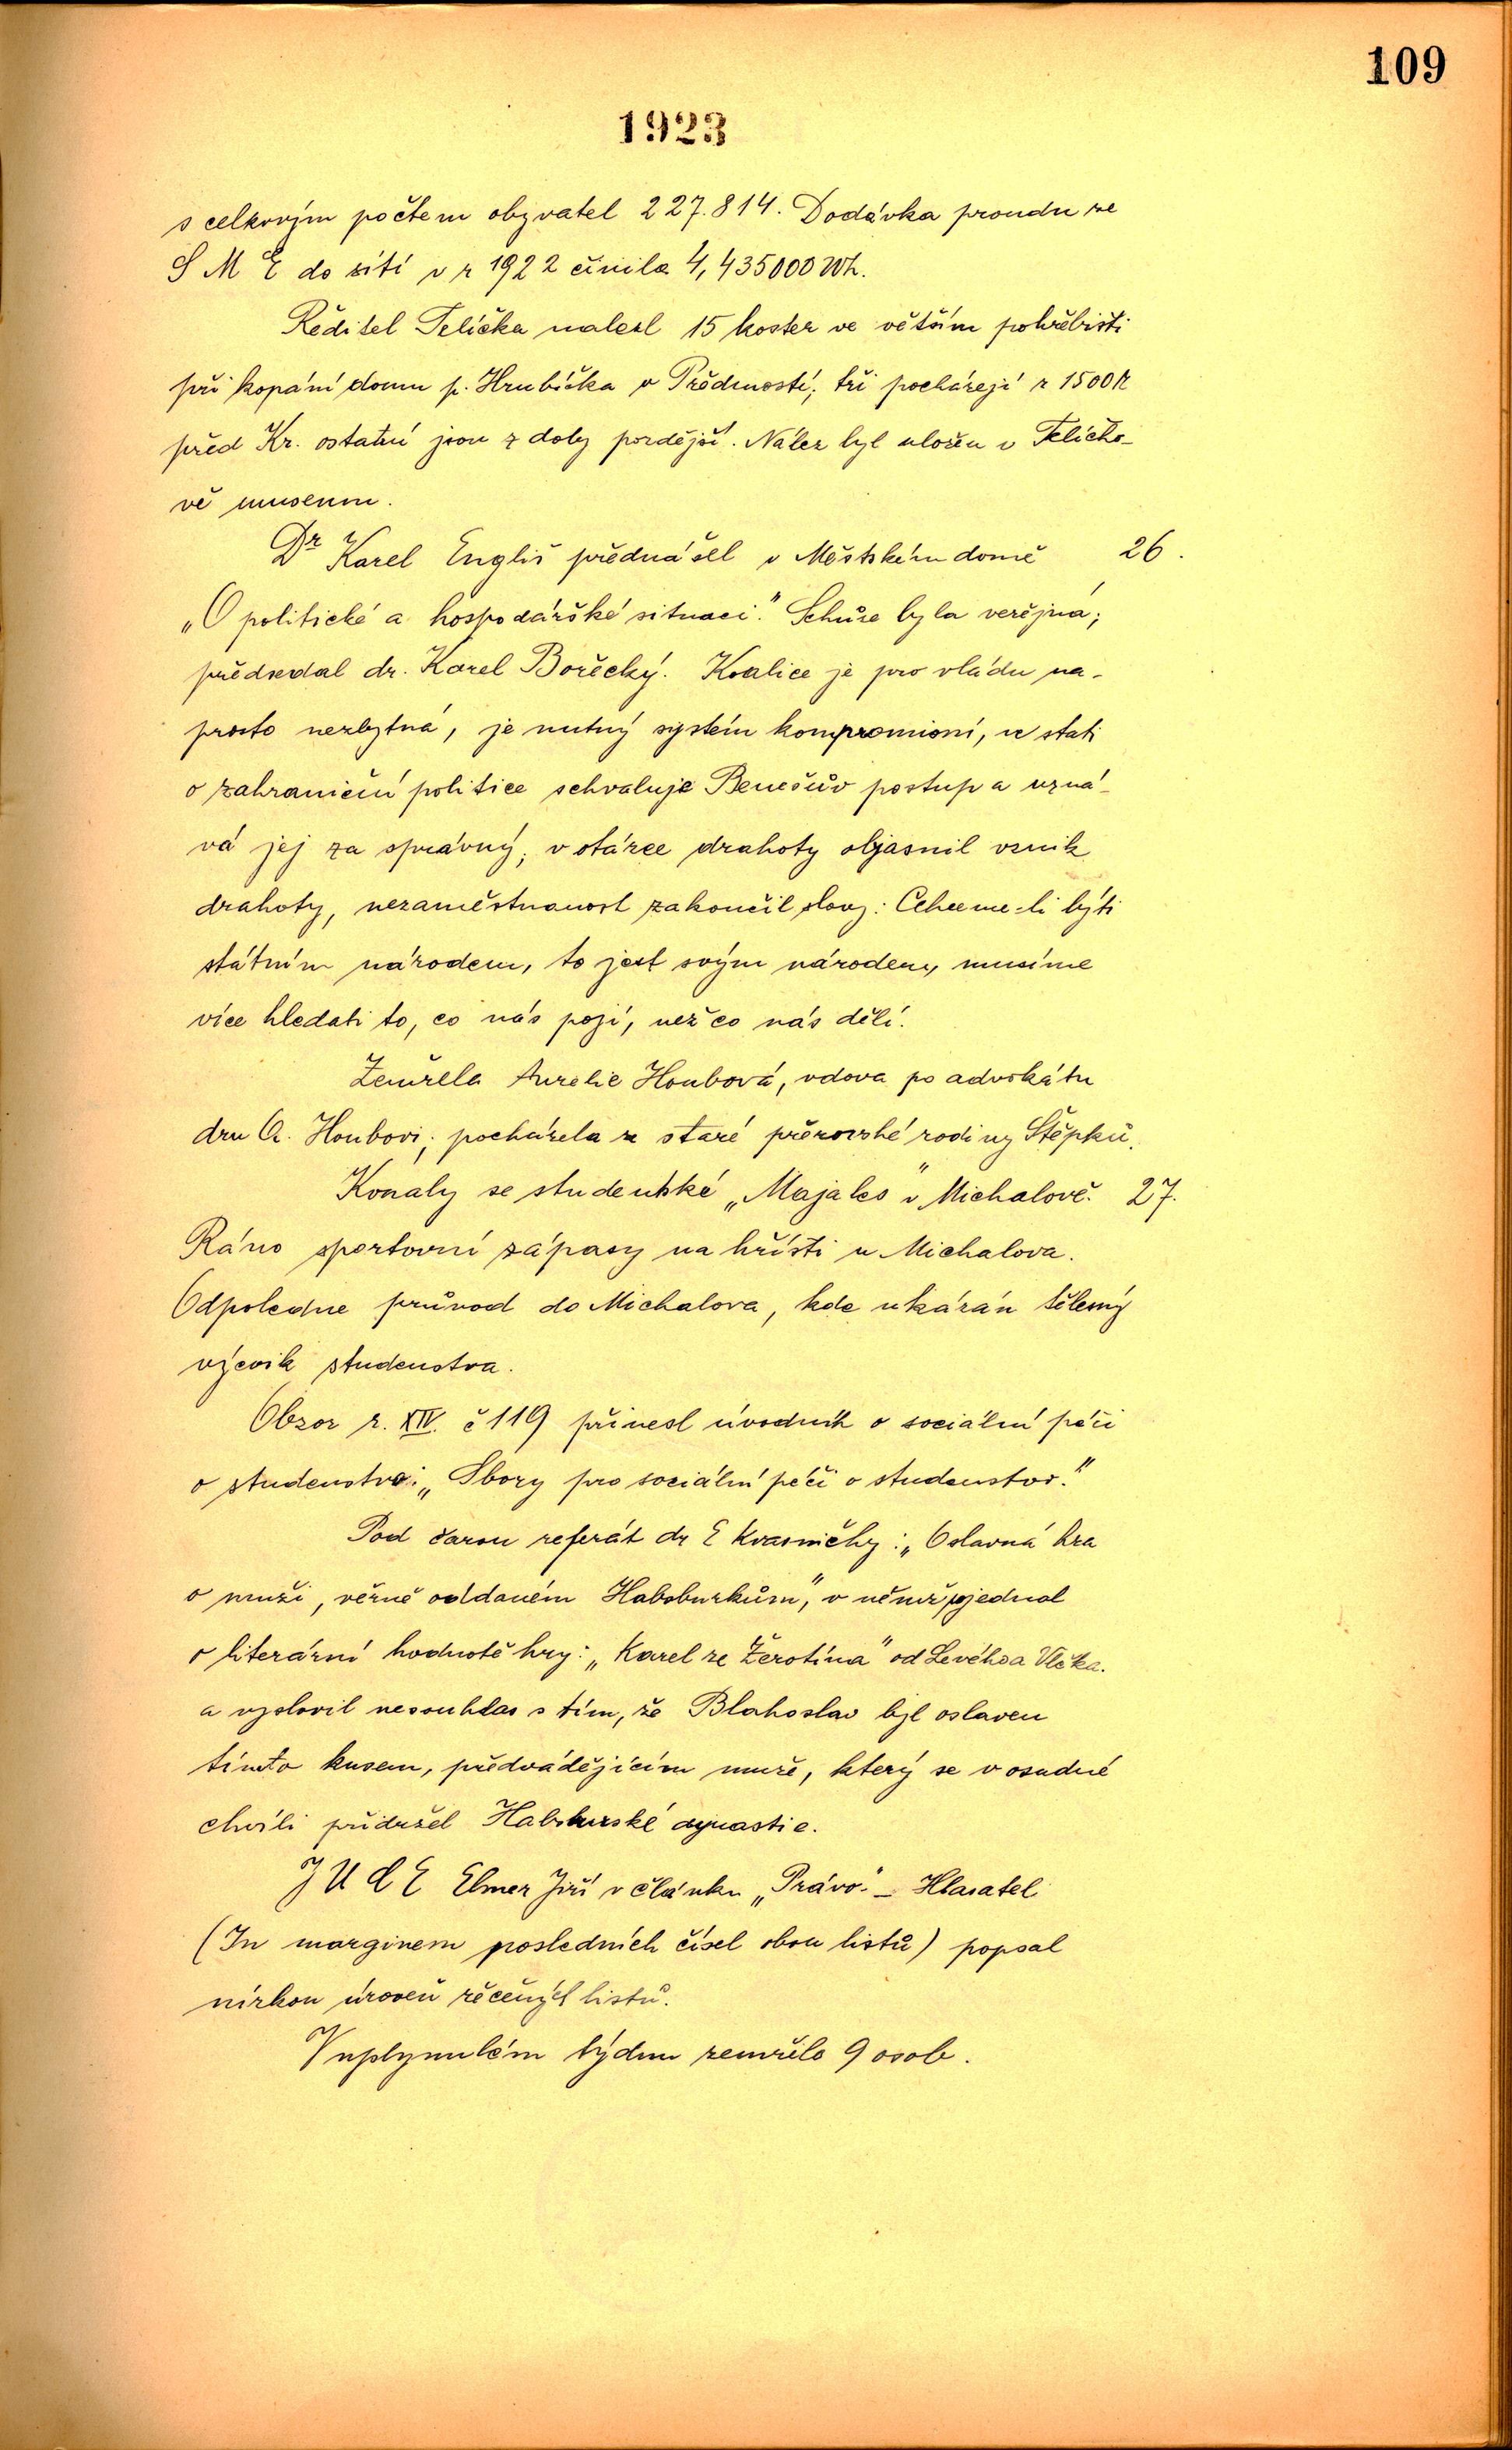 109
1923
s celkovým počtem obyvatel 227.814. Dodávka proudu ze
S M E do sítí v r 1922 činila 4,435000 Wh.
Ředitel Telička nalezl 15 koster ve větším pohřebišti
při kopání domu p. Hrubíčka v Předmostí; tři pocházejí z 1500 R
před Kr. ostatní jsou z doby pozdější. Nález byl uložen v Teličko-
vě museum.
Dr Karel Engliš přednášel v Městském domě 26.
„O politické a hospodářské situaci." Schůze byla veřejná;
předsedal dr. Karel Bořecký. Koalice je pro vládu na-
prosto nezbytná, je nutný systém kompromisní, ve stati
o zahraniční politice schvaluje Benešův postup a uzná-
vá jej za správný; v otázce drahoty objasnil vznik
drahoty, nezaměstnanost zakončil slovy: Chceme-li býti
státním národem, to jest svým národem, musíme
více hledati to, co nás pojí, než co nás dělí.
Zemřela Aurelie Houbová, vdova po advokátu
dru A. Houbovi; pocházela ze staré přerovské rodiny Štěpků.
Konaly se studentské „Majales" v Michalově. 27.
Ráno sportovní zápasy na hřišti u Michalova.
Odpoledne průvod do Michalova, kde ukázán tělesný
výcvik studenstva.
Obzor r. XIV. č 119 přinesl úvodník o sociální péči
o studenstvo: „Sbory pro sociální péči o studenstvo."
Pod čarou referát dr E Kvasničky: „Oslavná hra
o muži, věrně oddaném Habsburkům", v němž pojednal
o literární hodnotě hry: „Karel ze Žerotína" od Levého a Vlčka.
a vyslovil nesouhlas s tím, že Blahoslav byl oslaven
tímto kusem, předvádějícím muže, který se v osudné
chvíli přidržel Habsburské dynastie.
J U C E Elmer Jiří v článku „Právo" - Hlasatel
(In marginem posledních čísel obou listů) popsal
nízkou úroveň řečených listů.
V uplynulém týdnu zemřelo 9 osob.